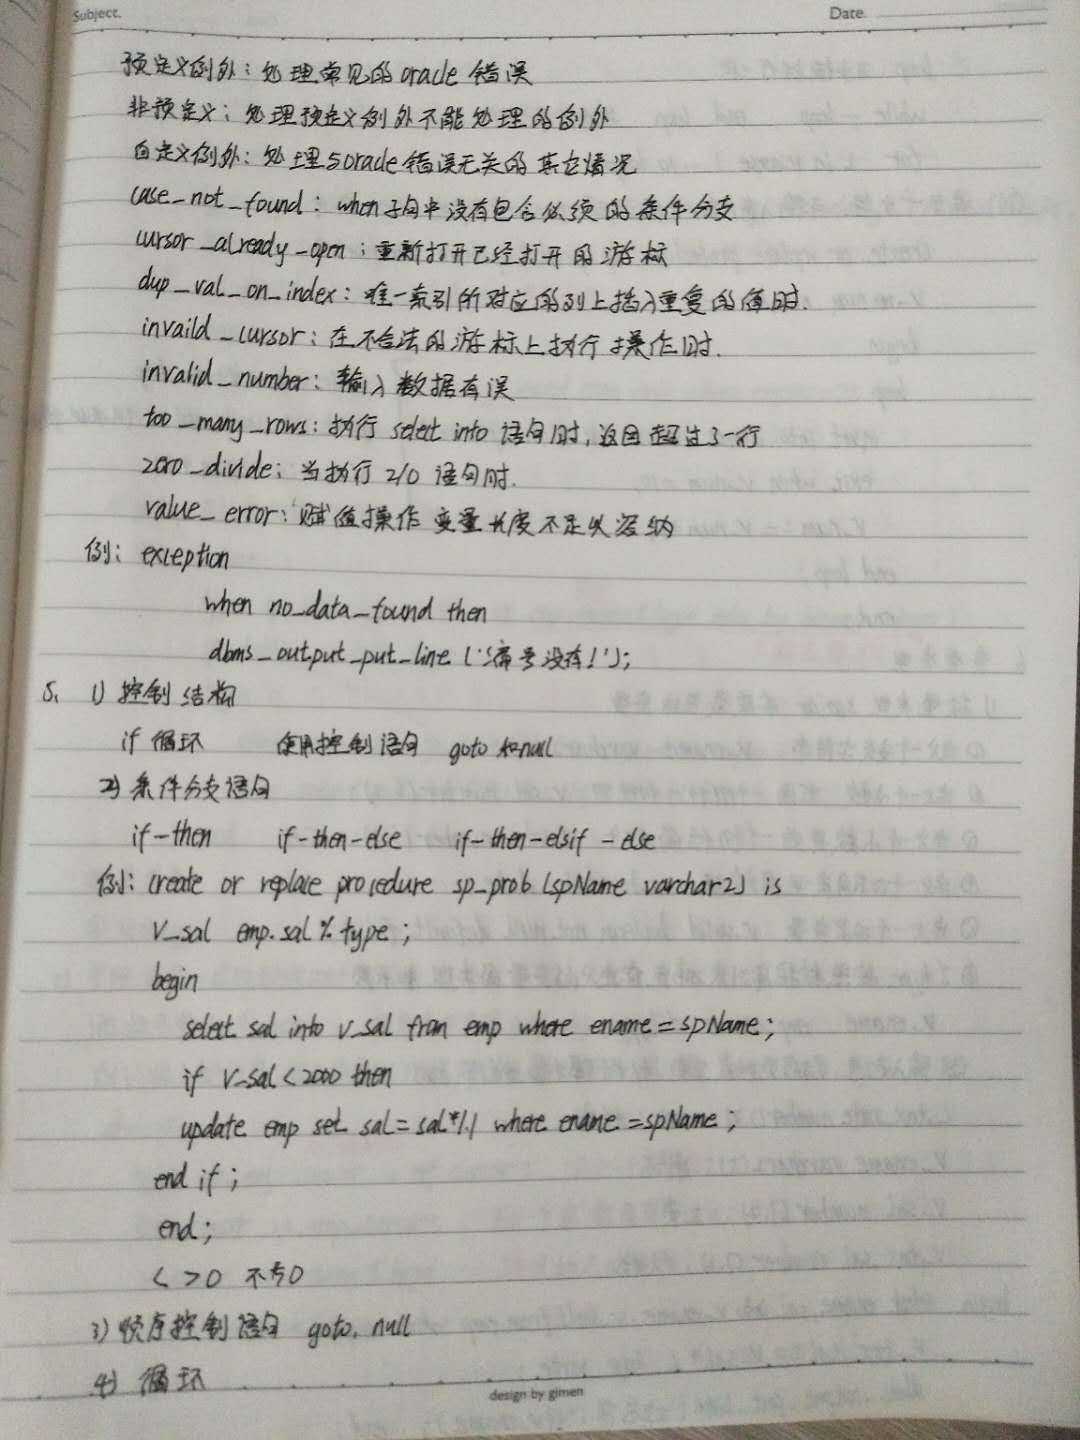 Subject.
Date.
预定义例外：处理常见的oracle 错误
非预定义：处理预定义例外不能处理的例外
自定义例外：处理与oracle错误无关的其它情况
case_not_found：when子句中没有包含必须的条件分支
cursor_already_open：重新打开已经打开的游标
dup_val_on_index：唯一索引所对应的列上插入重复的值时.
invaild_cursor：在不合法的游标上执行操作时.
invalid_number：输入数据有误
too_many_rows：执行 select into 语句时，返回超过了一行
zero_divide：当执行 2/0 语句时.
value_error：赋值操作 变量长度不足以容纳
例：exception
when no_data_found then
dbms_output_put_line ('编号没有！');
5、 1) 控制结构
if 循环 使用控制语句 goto 和null
2) 条件分支语句
if-then if-then-else if-then-elsif-else
例：create or replace procedure sp_prob (spName varchar2) is
v_sal emp.sal%type;
begin
select sal into v_sal from emp where ename=spName;
if v_sal<2000 then
update emp set sal=sal*1.1 where ename=spName;
end if;
end;
< >0 不为0
3) 顺序控制语句 goto. null
4) 循环
design by gimen